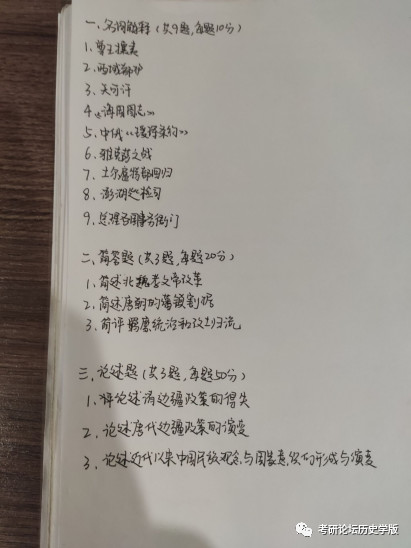 一、名词解释(共9题,每题10分)
1、尊王攘夷
2、西域都护
3、天可汗
4、《海国图志》
5、中俄《瑷珲条约》
6、雅克萨之战
7、土尔扈特部回归
8、澎湖巡检司
9、总理各国事务衙门
二、简答题(共3题,每题20分)
1、简述北魏孝文帝改革
2、简述唐朝的藩镇割据
3、简评羁縻统治和改土归流
三、论述题(共3题,每题50分)
1、评论述清边疆政策的得失
2、论述唐代边疆政策的演变
3、论述近代以来中国民族观念与国家意识的形成与演变
考研论坛历史学版